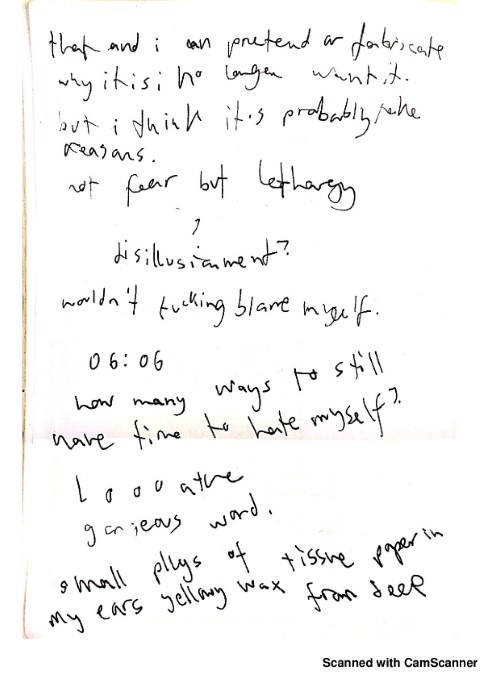 that and i can pretend or fabricate
why it is i no longer want it.
but i think it's probably the
reasons.
not fear but lethargy
?
disillusionment?
wouldn't fucking blame myself.
06:06
how many ways to still
have time to hate myself?
L o o o athe
gorjeous word.
small plugs of tissue paper in
my ears yellowy wax from deep
Scanned with CamScanner